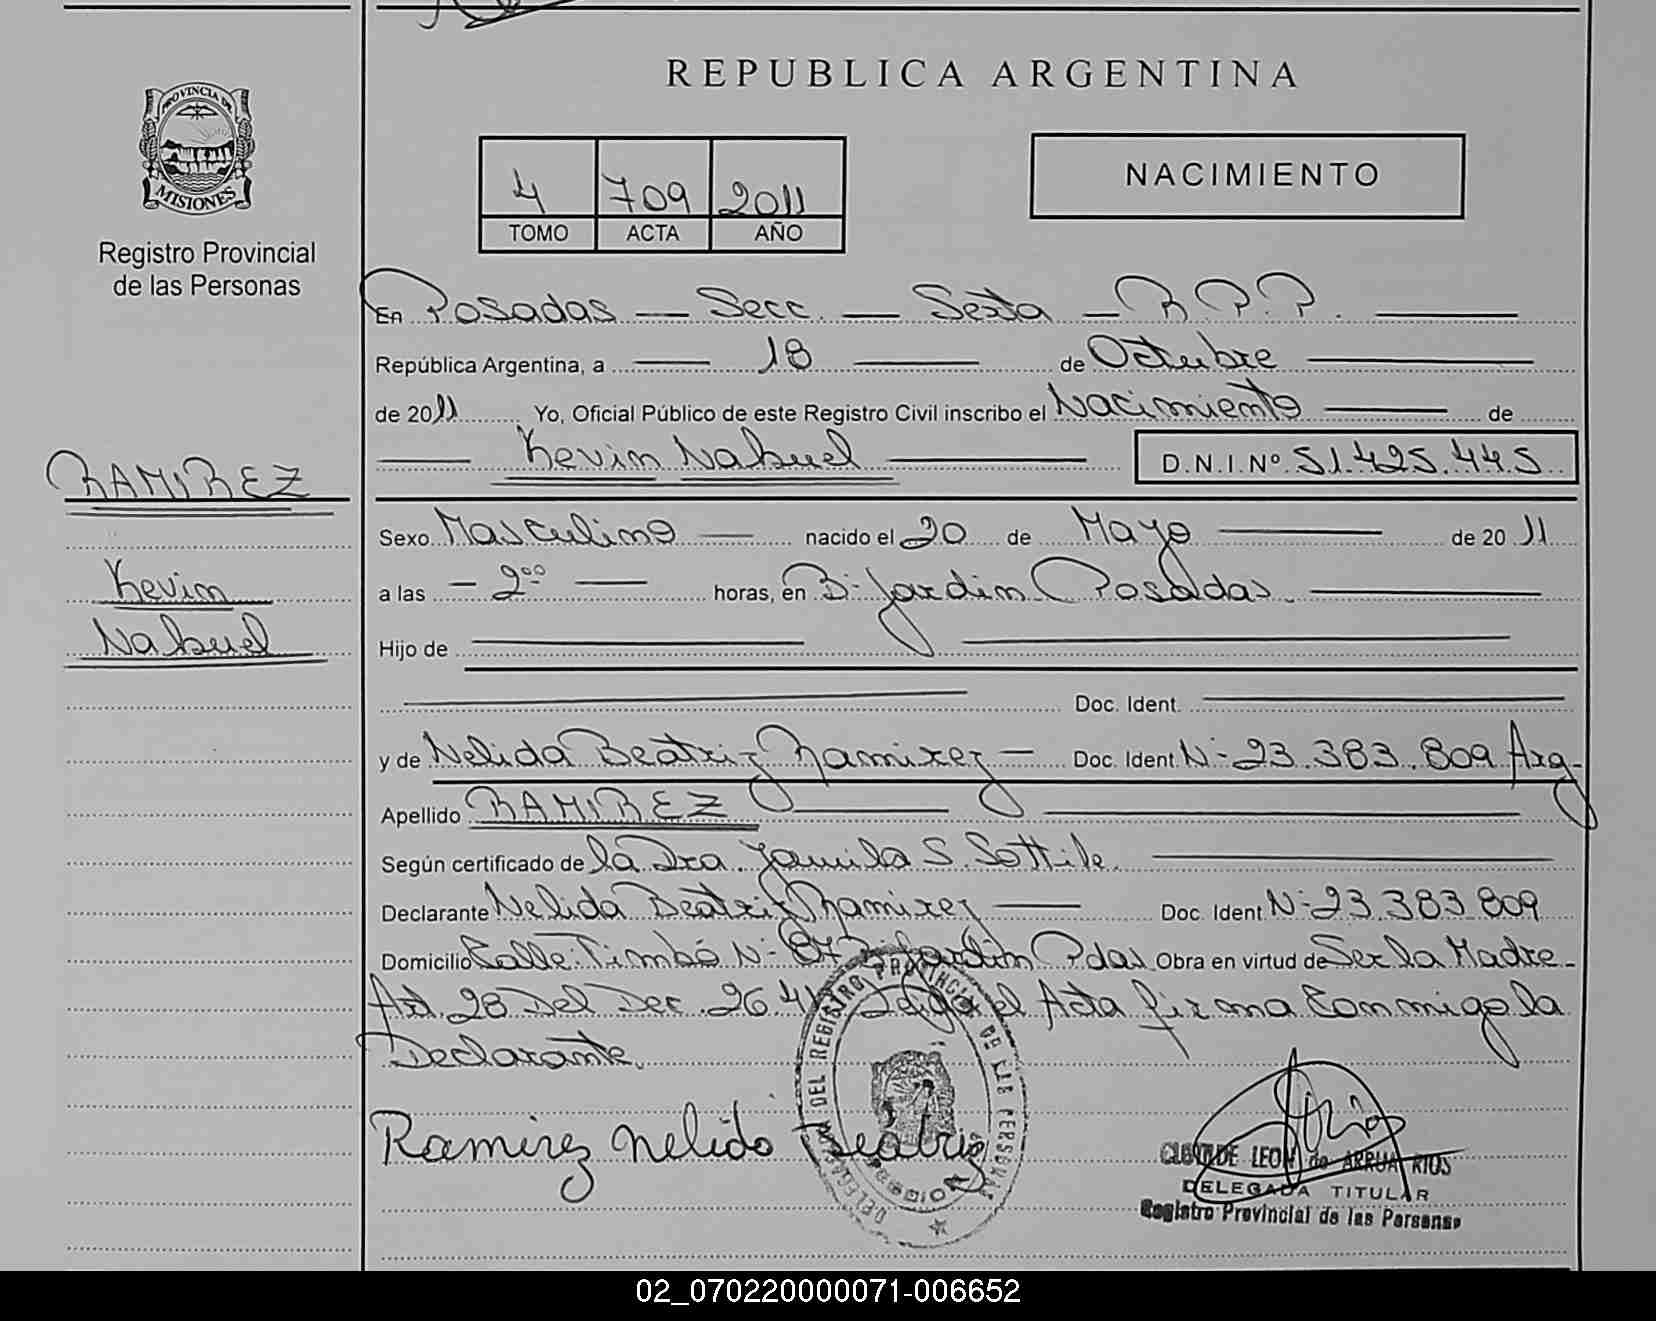 REPUBLICA ARGENTINA
PROVINCIA DE
MISIONES
Registro Provincial
de las Personas
4 709 2011
TOMO ACTA AÑO
NACIMIENTO
En Posadas — Secc. — Sexta — R.P.P.
República Argentina, a — 18 — de Octubre
de 2011 Yo, Oficial Público de este Registro Civil inscribo el Nacimiento — de
— Kevin Nahuel — D.N.I.Nº 51.425.445
RAMIREZ
Kevin
Nahuel
Sexo Masculino — nacido el 20 de Mayo — de 2011
a las — 2⁰⁰ — horas, en Bº Jardin Posadas. —
Hijo de
Doc. Ident.
y de Nelida Beatriz Ramirez — Doc. Ident. Nº 23.383.809 Arg-
Apellido RAMIREZ
Según certificado de la Dra. Yamila S. Sottile.
Declarante Nelida Beatriz Ramirez — Doc. Ident. Nº 23.383.809
Domicilio Calle Timbó Nº Jardin Pdas Obra en virtud de Ser la Madre -
Art. 28 Del Dec. el Acta firma Conmigo la
Declarante.
Ramirez Nelida Beatriz
DELEGACION DEL REGISTRO PROVINCIAL DE LAS PERSONAS
CLOTILDE LEON de ARRUA RIOS
DELEGADA TITULAR
Registro Provincial de las Personas
02_070220000071-006652